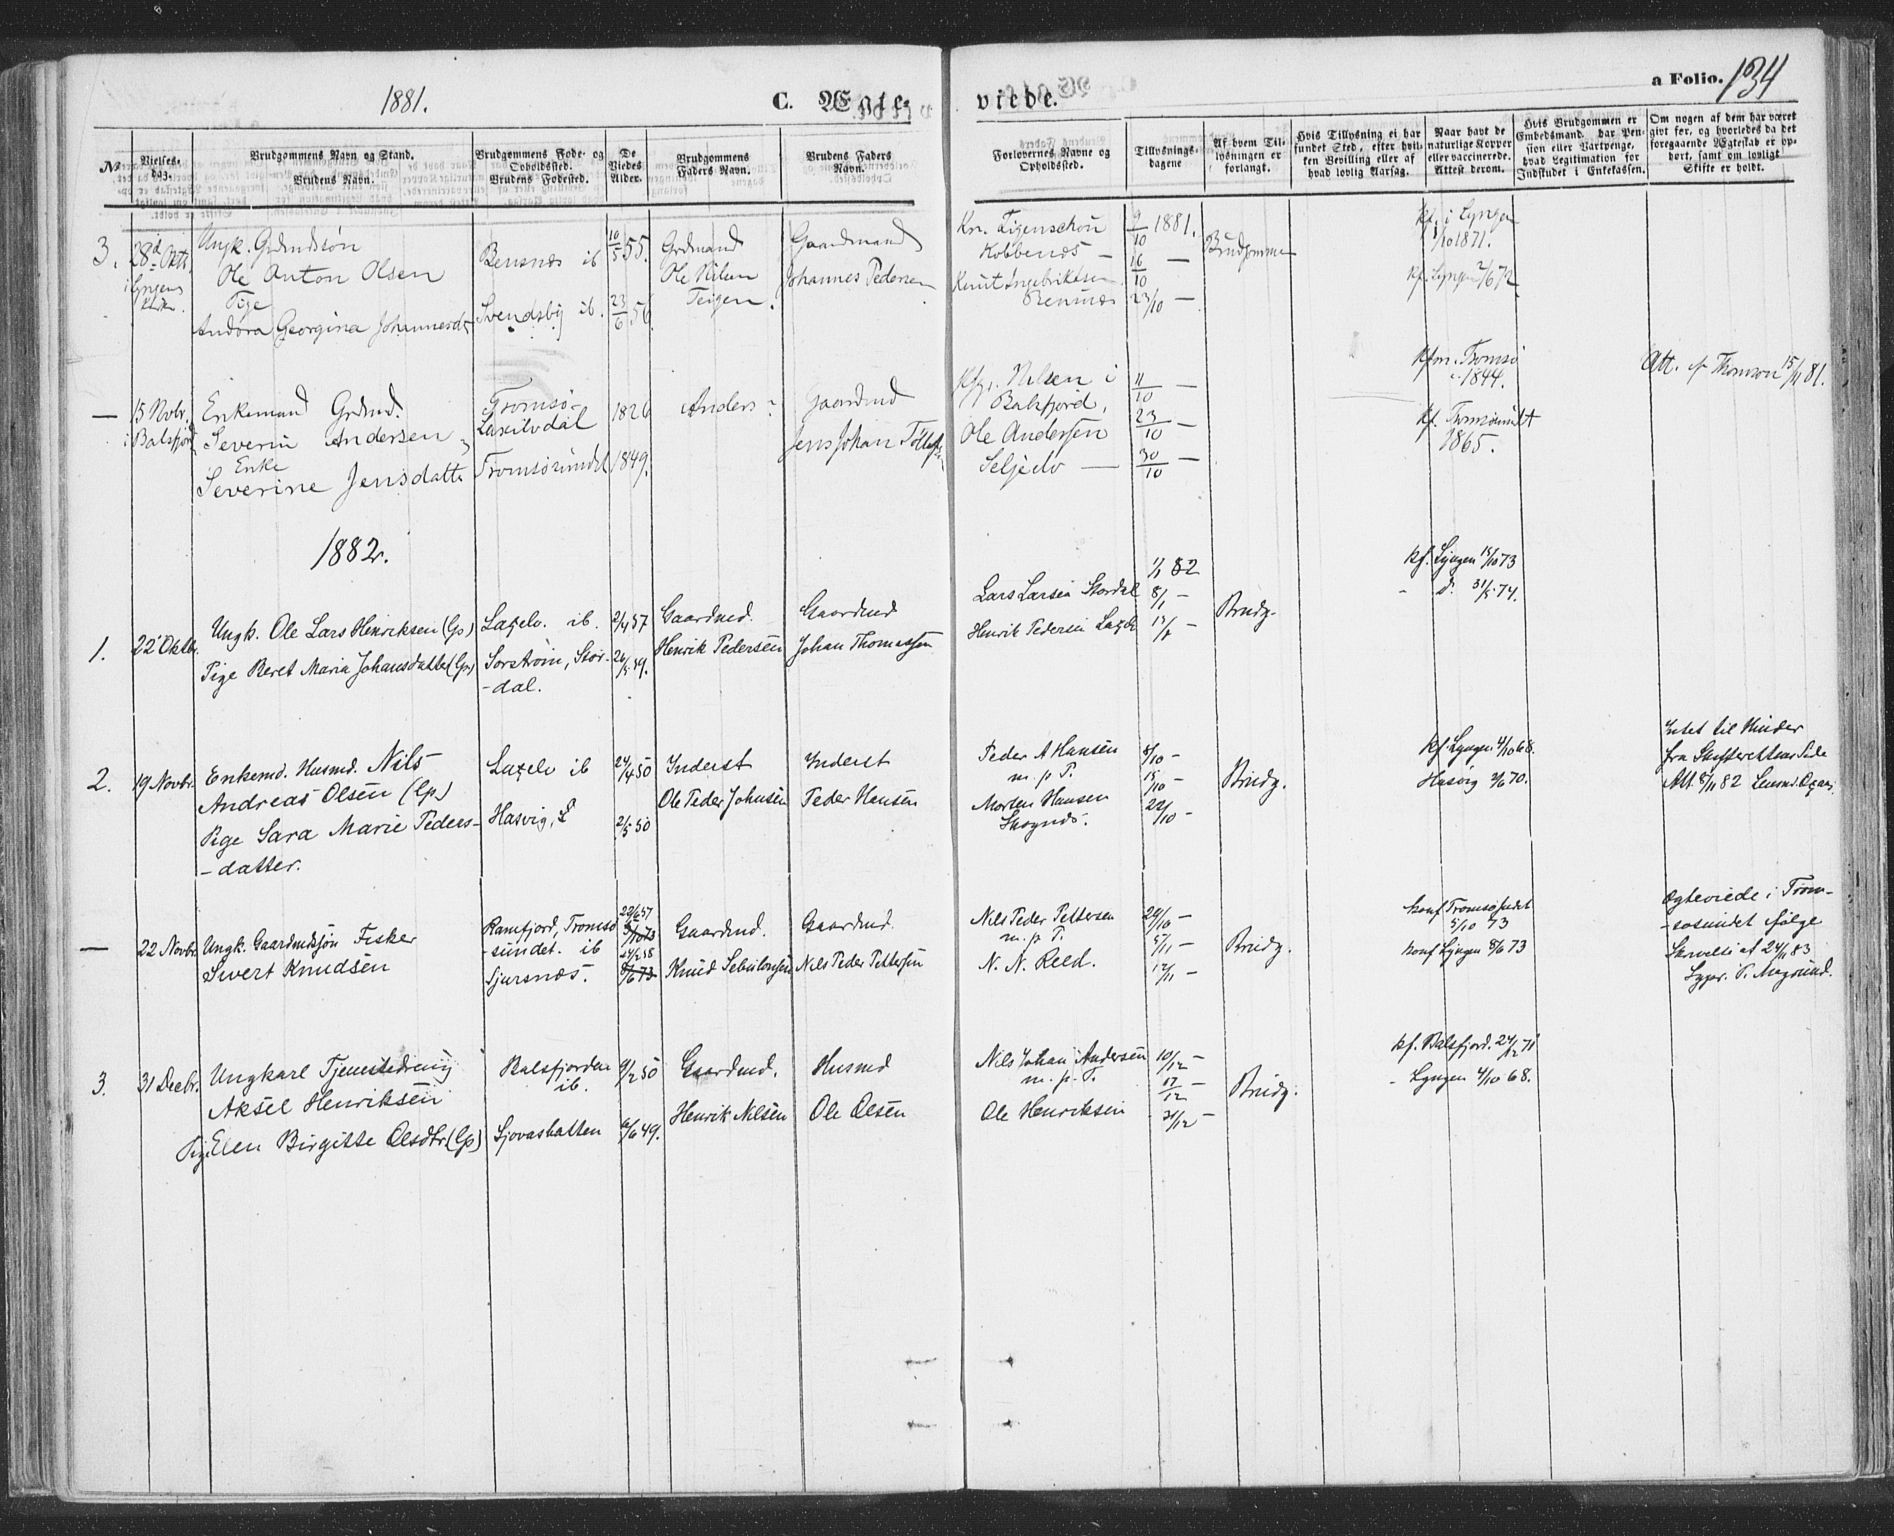 1881.
C. Ægte-
viede.
a Folio. 134
No
Vielses-dag.
Brudgommens Navn og Stand.
Brudens Navn.
Brudgommens Føde- og Opholdssted.
Brudens Fødested.
De Viedes Alder.
Brudgommens Faders Navn.
Brudens Faders Navn.
Forlovernes Navne og Opholdssted.
Tillysnings-dagene
Af hvem Tillysningen er forlangt.
Hvis Tillysning ei har fundet Sted, efter hvilken Bevilling eller af hvad lovlig Aarsag.
Naar havt de naturlige Kopper eller vaccinerede. Attest derom.
Hvis Brudgommen er Embedsmand, har Pension eller Vartpenge, hvad Legitimation for Indskudet i Enkekassen.
Om nogen af dem har været gift før, og hvorledes da det foregaaende Ægteskab er ophørt, samt om lovligt Skifte er holdt.
3. 28de Oktbr. i Lyngens Kirke.
Ungk. Grdmdssøn
Ole Anton Olsen
Pige
Andora Georgina Johannesd.
Bensnæs ib
Svendsby ib.
16/5 55.
23/6 56.
Grdmand
Ole Nilsen
Teigen.
Gaardmand
Johannes Pedersen
Kobbenæs —
Knut Ingebriktsen
9/10 1881.
16/10 —
23/10 —
Brudgommen
kf. i Lyngen
1/10 1871.
kf. Lyngen 2/6 72
— 15 Novbr. i Balsfjord
Enkemand Grdmd.
Severin Andersen
Enke
Severine Jensdatter
Tromsø-
Laxelvdal
Tromsøsundet
1826
1849.
Anders ?
Gaardmd
Jens Johan
Nilsen i
Balsfjord,
Ole Andersen
Seljelv —
11/10 —
23/10 —
30/10 —
kfm. Tromsø
1844.
kf. Tromsøsundt
1865.
Att. f. Thomsøn 15/11 81.
1882.
1. 22' Oktbr.
Ungk. Ole Lars Henriksen (Gp)
Pige Beret Maria Johansdatter (Gp)
Laxelv. ib.
Sorstrøm, Stor-
-dal.
2/4 57
26/5 49.
Gaardmd.
Henrik Pedersen
Gaardmd
Johan Thomassen
Lars Larsen Stordal
Henrik Pedersen Laxelv
1/1 82
8/1 —
15/1 —
Brudg.
kf. Lyngen 15/10 73
- d. 31/5 74.
2. 19 Novbr.
Enkemd. Husmd. Nils
Andreas Olsen (Gp)
Pige Sara Marie Peders-
-datter.
Laxelv ib
Hasvig, L
24/4 50
2/5 50
Inderst
Ole Peder Johnsen
Inderst
Peder Hansen
Peder A Hansen
m. p. P.
Morten Hansen
Skognæs.
8/10 —
15/10 —
22/10 —
Brudg.
kf. Lyngen 4/10 68.
Hasvig 2/6 70.
Intet til Hinder
fra Skifterettens Side
Att. 8/11 82
— 22 Novbr.
Ungk. Gaardmdssøn Fisker
Sivert Knudsen
Ramfjord, Tromsø
-sundet. ib
Sjursnæs.
22/6 57
Gaardmd.
Knud
Gaardmd.
Nils Peder Pettersen
Nils Peder Pettersen
m. p. P.
N. N. Reld.
29/10 —
5/11 —
12/11 —
Brudg.
konf Tromsøsudet
5/10 73
konf Lyngen 8/6 73
Ægteviede i Trom-
-søsundet ifølge
Skrivelse af 24/11 83
3. 31 Decbr.
Ungkarl Tjenestedreng
Aksel Henriksen
Pige Elen Birgitte Olsdtr (Gp)
Balsfjorden
ib.
Sjovashatten
9/2 50
6/6 49.
Gaardmd.
Henrik Nilsen
Husmd
Ole Olsen
Nils Johan Andersen
m. p. P.
Ole Henriksen
10/12 —
17/12 —
31/12 —
Brudg.
kf. Balsfjord. 24/12 71
- Lyngen 4/10 68.